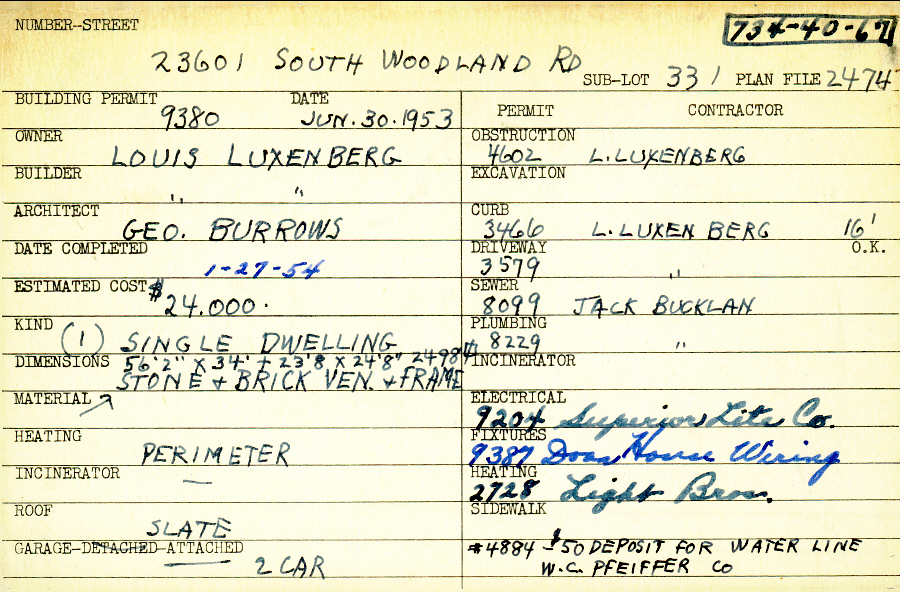 NUMBER-STREET
734-40-67
23601 SOUTH WOODLAND RD
SUB-LOT 331 PLAN FILE 24747
BUILDING PERMIT DATE
9380 JUN. 30. 1953
OWNER
LOUIS LUXENBERG
BUILDER
" "
ARCHITECT
GEO. BURROWS
DATE COMPLETED
1-27-54
ESTIMATED COST $
24.000.
KIND
(1) SINGLE DWELLING
DIMENSIONS 56'2" X 34' + 23'8 X 24'8"
STONE + BRICK VEN. + FRAME
MATERIAL
HEATING
PERIMETER
INCINERATOR
—
ROOF
SLATE
GARAGE-DETACHED-ATTACHED
2 CAR
PERMIT CONTRACTOR
OBSTRUCTION
4602 L. LUXENBERG
EXCAVATION
CURB
3466 L. LUXENBERG 16'
DRIVEWAY O.K.
3579 "
SEWER
8099 JACK BUCKLAN
PLUMBING
8229 "
INCINERATOR
ELECTRICAL
9204 Superior Lite Co.
FIXTURES
9387 Doan House Wiring
HEATING
2728 Light Bros.
SIDEWALK
#4884 - $50 DEPOSIT FOR WATER LINE
W.C. PFEIFFER CO